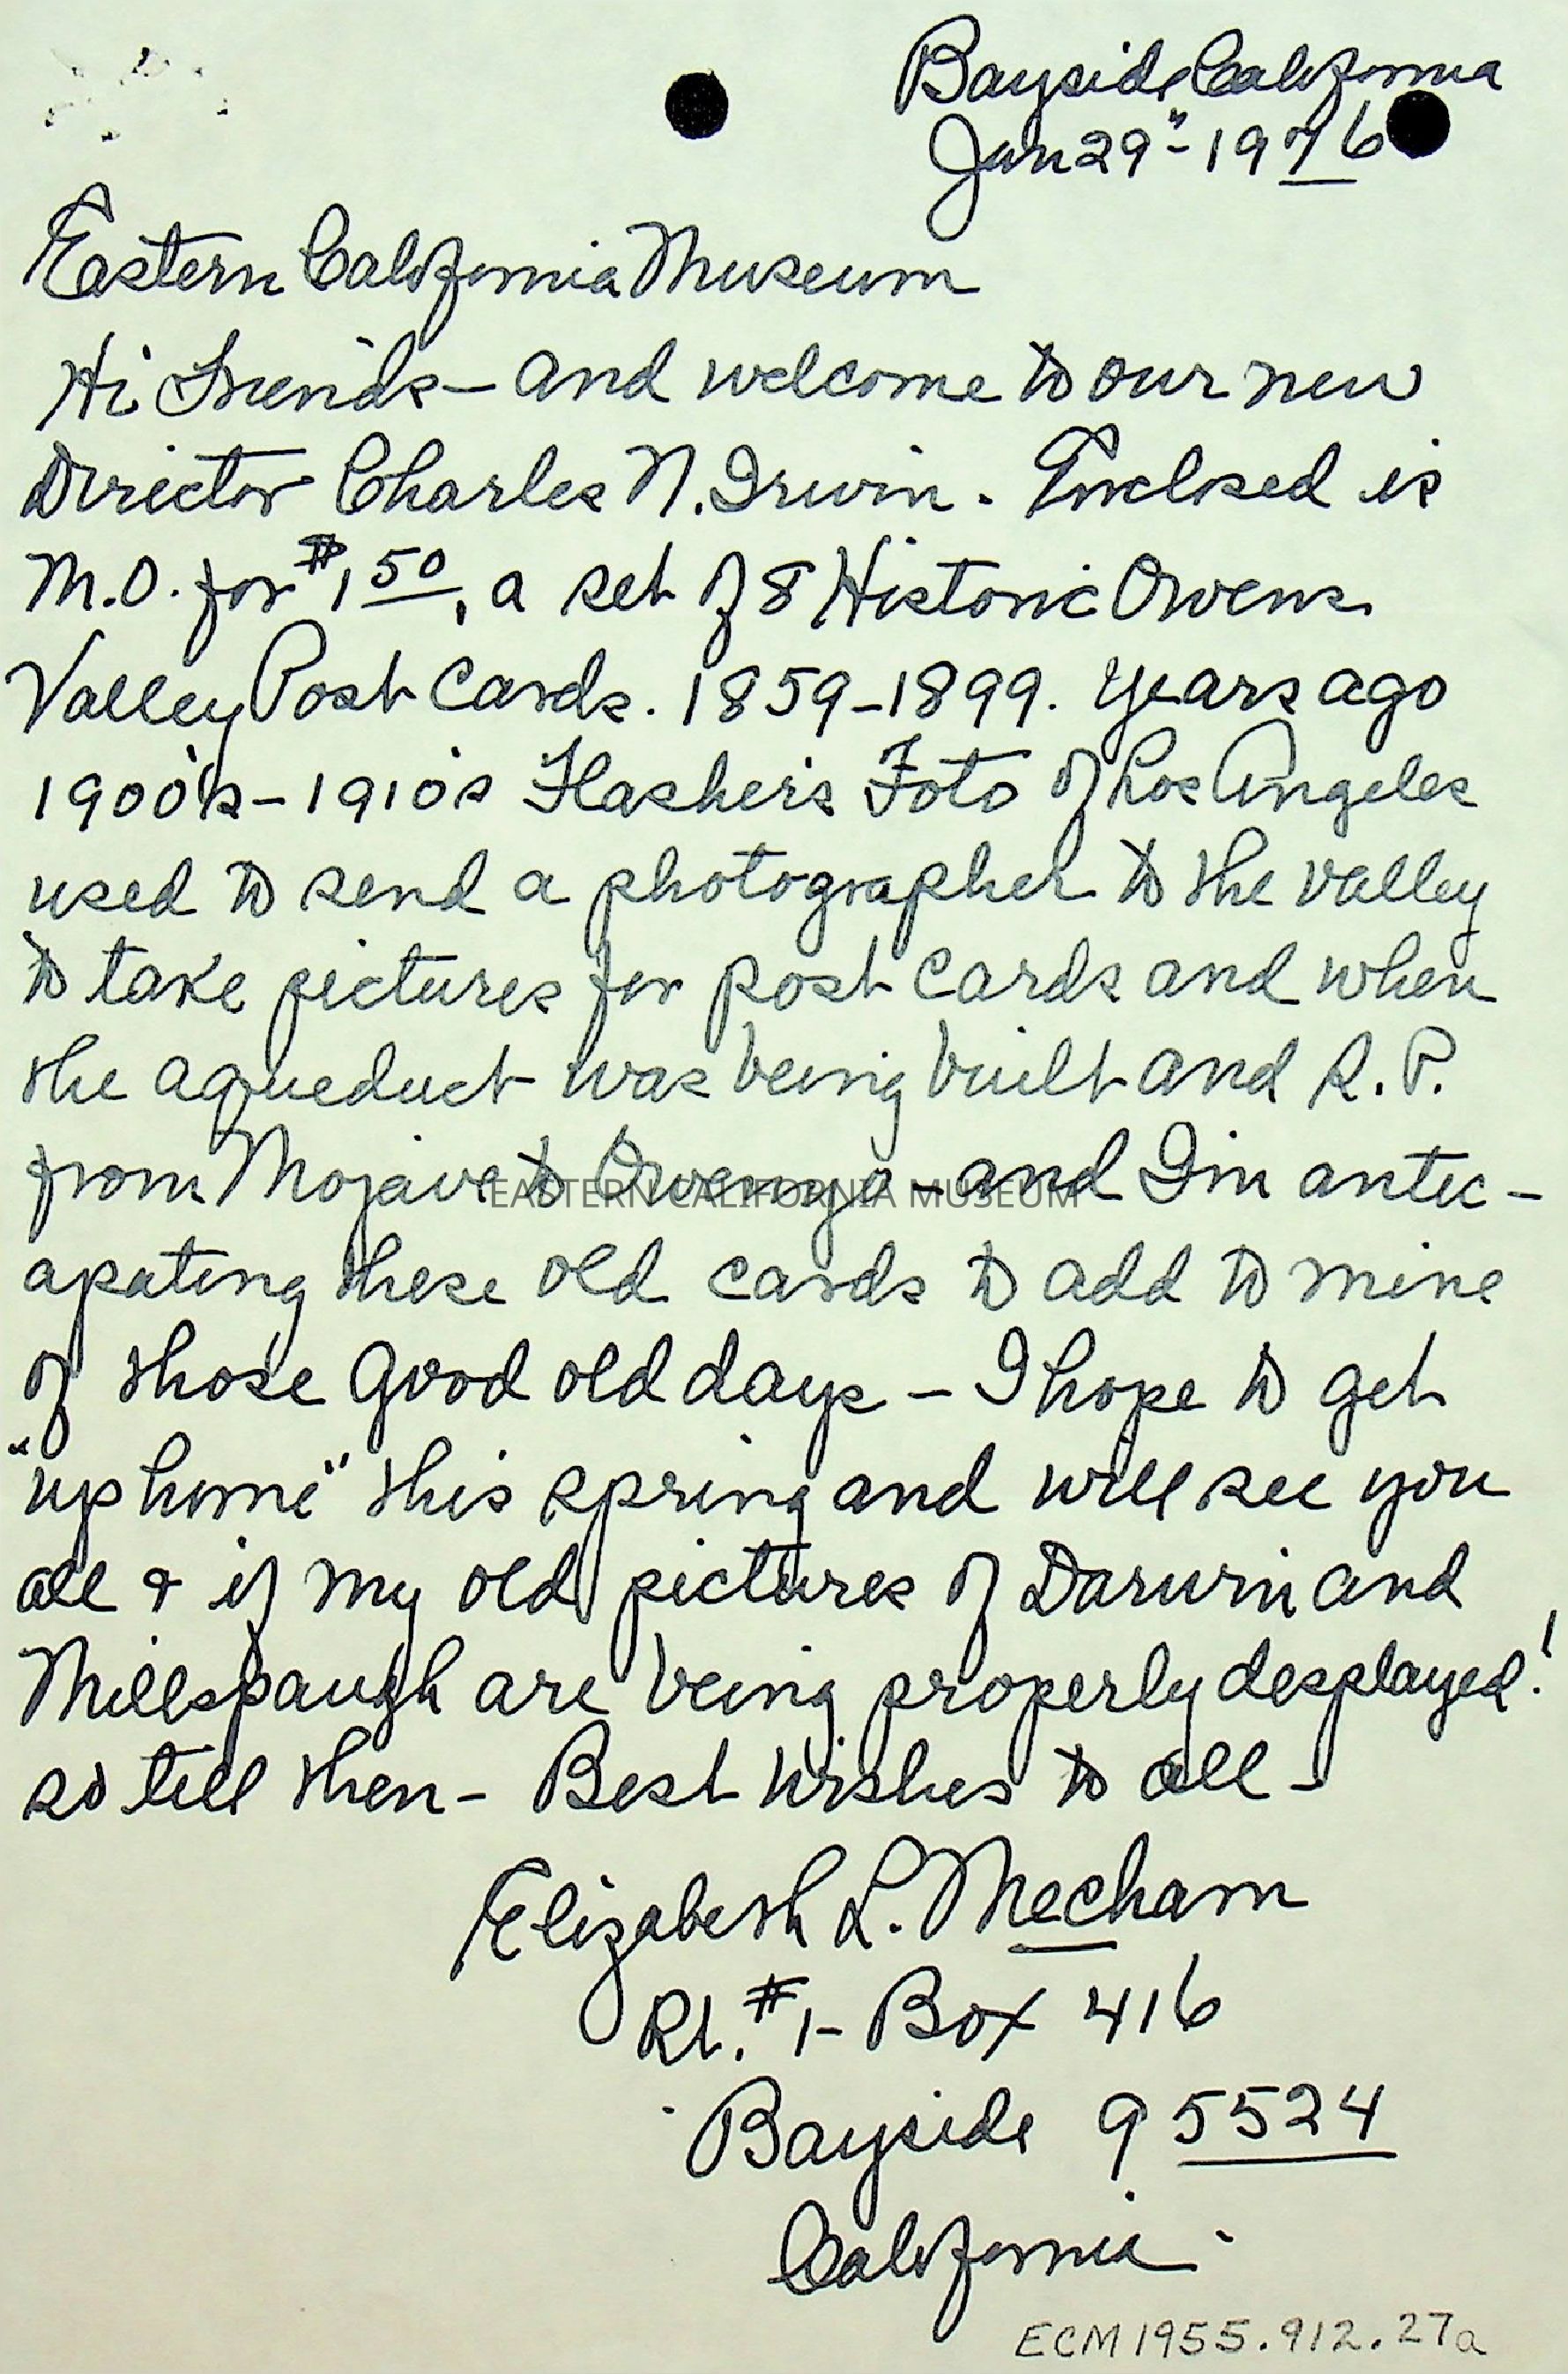 Bayside, California
Jan 29" - 1976
Eastern California Museum
Hi Friends - and welcome to our new
Director Charles N. Irwin. Enclosed is
M.O. for $1.50, a set of 8 Historic Owens
Valley Post Cards. 1859-1899. Years ago
1900's - 1910's Flasher's Foto of Los Angeles
used to send a photographer to the valley
to take pictures for post cards and when
the aqueduct was being built and R.P.
from Mojave to Owenyo - and I'm antic-
apating these old cards to add to mine
of those good old days - I hope to get
"up home" this spring and will see you
all & if my old pictures of Darwin and
Millspaugh are being properly desplayed!
so till then - Best Wishes to all -
Elizabeth L. Mecham
Rt. #1 - Box 416
Bayside 95524
California -
ECM 1955.912.27a
EASTERN CALIFORNIA MUSEUM